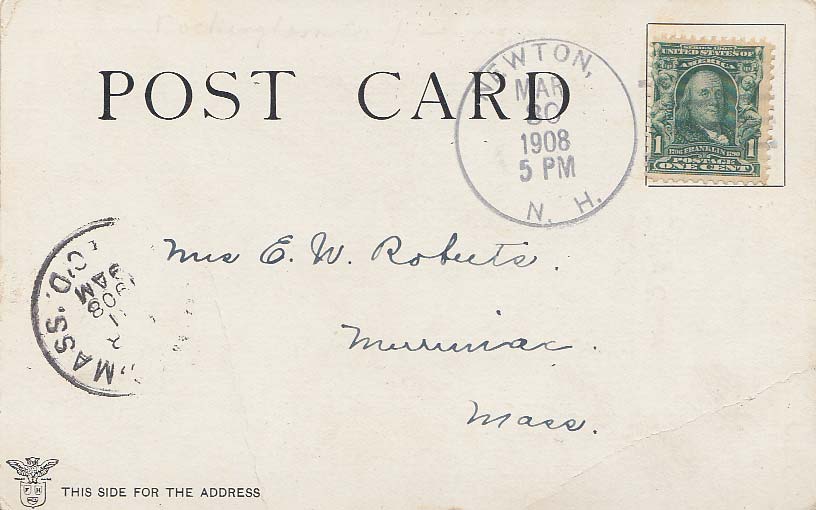 Rockingham
POST CARD
NEWTON,
MAR
30
1908
5 PM
N. H.
SERIES 1902
UNITED STATES OF
AMERICA
1 1706 FRANKLIN 1790 1
POSTAGE
ONE CENT
Mrs E. W. Roberts.
Merrimac.
Mass.
REC'D.
MASS.
1908
AM
F H
THIS SIDE FOR THE ADDRESS